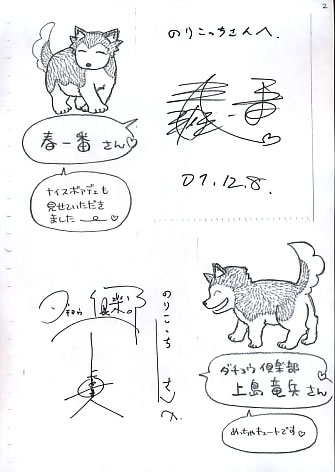 2
のりこっちさんへ.
春一番 さん♡
ナイスボディも
見せていただき
ました ♡
春一番
07.12.8.
ダチョウ 倶楽部
竜兵
のりこっち さんへ
ダチョウ 倶楽部
上島 竜兵 さん
めっちゃキュートです♡